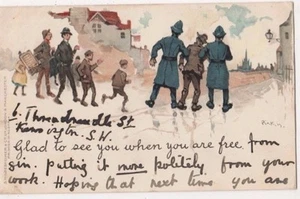 6. Threadneedle St
Kensington. S.W.
Glad to see you when you are free from
gin. putting it more politely from your
work. Hoping that next time you are